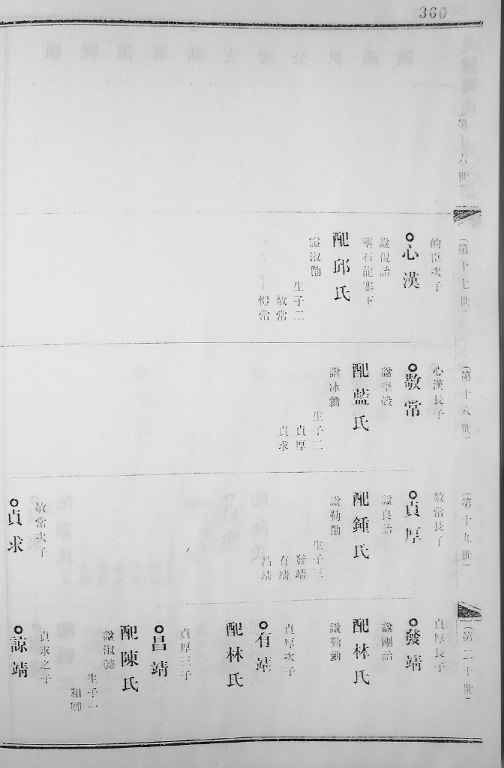 360
（第十六世）
（第十七世）
的臣次子
心漢
諡侃詒
葬石龍寨下
配邱氏
諡淑勤
生子二
敬常
慢常
（第十八世）
心漢長子
敬常
配藍氏
諡冰勤
生子二
貞厚
貞求
（第十九世）
敬常長子
貞厚
諡良詒
配鍾氏
諡勤勤
生子三
發靖
有靖
昌靖
敬常次子
貞求
（第二十世）
貞厚長子
發靖
諡剛詒
配林氏
諡勤勤
貞厚次子
有靖
配林氏
貞厚三子
昌靖
配陳氏
生子一
和卿
貞求之子
諒靖